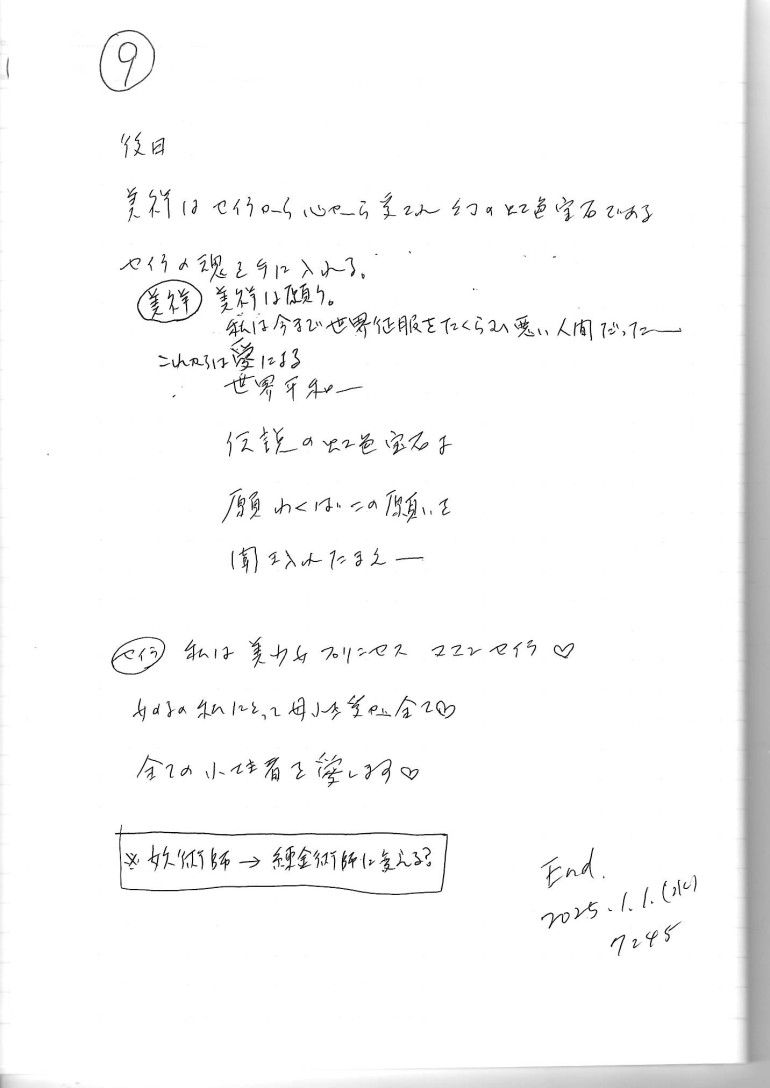 ⑨
後日
美祥はセイラから心から愛され幻の虹色宝石である
セイラの魂を手に入れる。
美祥 美祥は願う。
私は今まで世界征服をたくらむ悪い人間だった―
これからは愛による
世界平和―
伝説の虹色宝石よ
願わくばこの願いを
聞き入れたまえ―
セイラ 私は美少女プリンセス ママン セイラ♡
女の私にとって母性愛が全て♡
全ての小さき者を愛します♡
※妖術師→錬金術師に変える?
End.
2025.1.1.(水)
7245